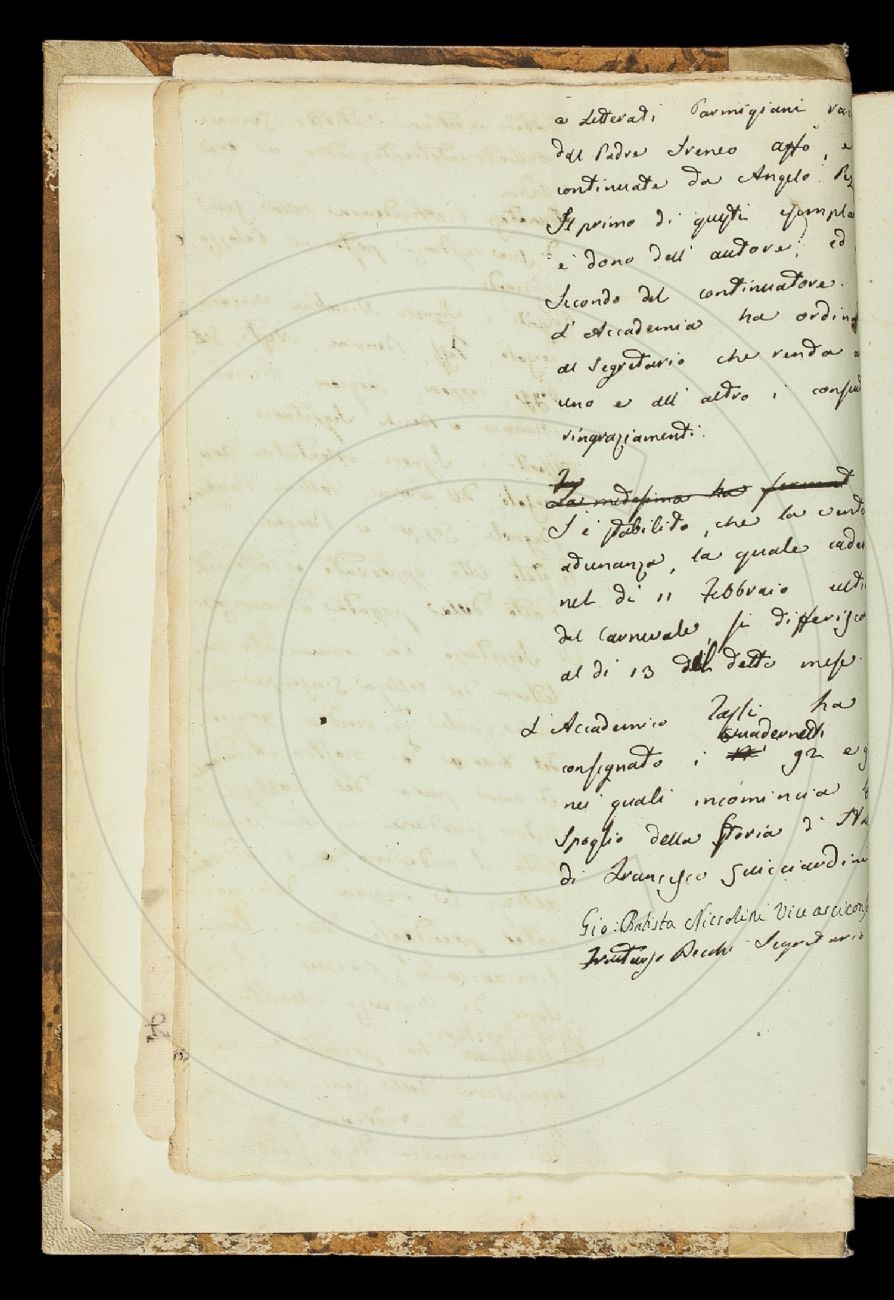 e Letterati Parmigiani rac
dal Padre Ireneo Affò, e
continuate da Angelo Pez
Il primo di questi esempla
è dono dell' autore, ed
Secondo del continuatore.
L' Accademia ha ordina
al Segretario che renda a
uno e all' altro i consue
ringraziamenti.
La medesima ha fermat
S' è stabilito, che la ventu
adunanza, la quale cader
nel dì 11 Febbraio ulti
del Carnevale, si differisca
al dì 13 del detto mese.
L' Accademico ha
Quadernetti
consegnato i 92 e 9
nei quali incomincia lo
Spoglio della Storia d' Ita
di Francesco Guicciardini
Gio: Batista Niccolini Vice arcicons
Fruttuoso Becchi Segretario